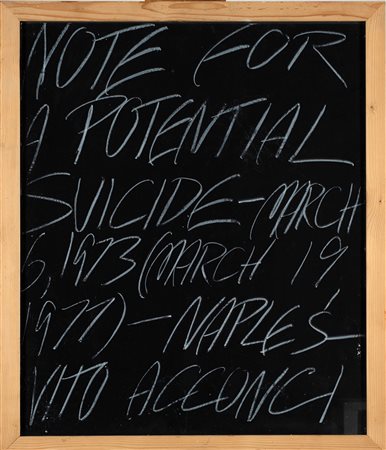 NOTE FOR
A POTENTIAL
SUICIDE - MARCH
6, 1973 (MARCH 19,
1977) - NAPLES
VITO ACCONCI